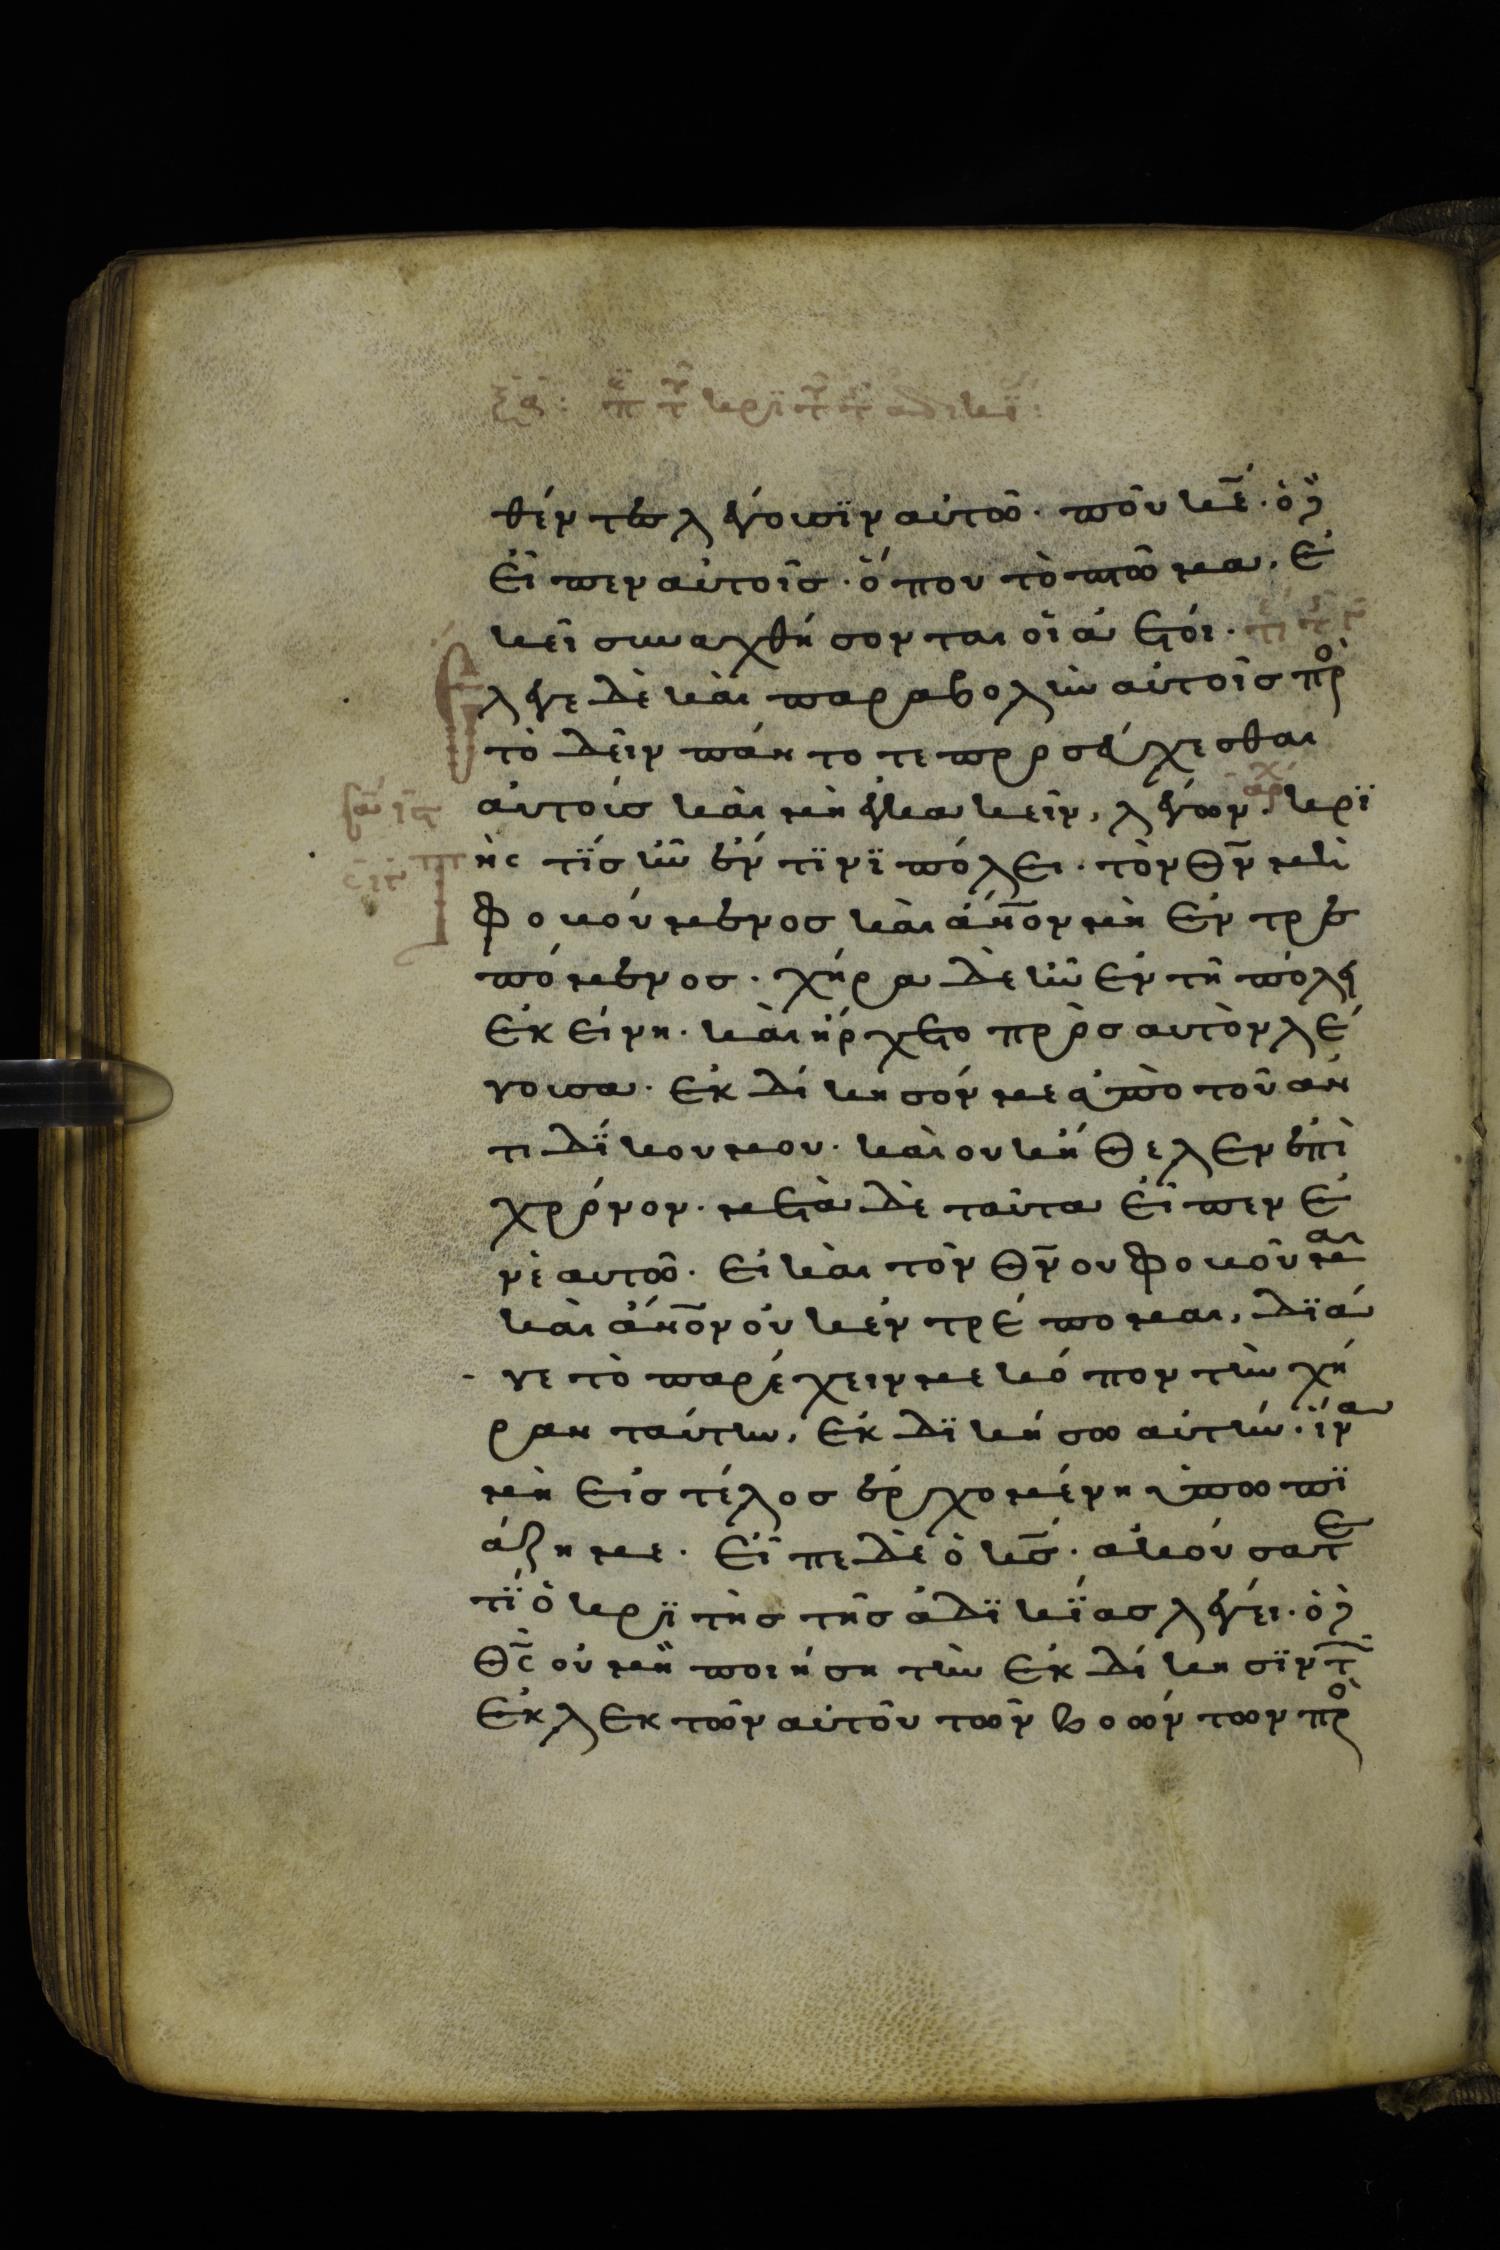 ξα: περὶ τοῦ κριτοῦ τῆς ἀδικί:
θέντες λέγουσϊν αὐτῶ· ποῦ κε̅· ὁ δὲ
εἶπεν αὐτοῖσ· ὅπου τὸ πτῶμα, ἐ
κεῖ συναχθήσονται οἱ ἀετοί·
Ἔλεγε δὲ καὶ παραβολὴν αὐτοῖσ πρὸ
τὸ δεῖν πάντοτε προσεύχεσθαι
αὐτοὺσ καὶ μὴ ἐκκακεῖν, λέγων· κρϊ
τὴς τϊσ ἦν ἔν τϊνϊ πόλει· τὸν θν̅ μὴ
φοβούμενοσ καὶ ἄνο̅ν μὴ ἐντρε
πόμενοσ· χήρα δὲ ἦν ἐν τῆ πόλει
ἐκείνη· καὶ ἤρχετο πρὸσ αυτὸν λέ
γουσα· ἐκδίκησόν με ἀπὸ τοῦ ἀν
τιδϊκου μου· καὶ ουκ ἤθελεν ἐπὶ
χρόνον· μετὰ δὲ ταῦτα εἶπεν ἐ
ν ἑαυτῶ· εἰ καὶ τὸν θν̅ ου φοβοῦμαι
καὶ ἄνο̅ν οὐκ ἐντρέπομαι, δϊά
γε τὸ παρέχειν με κόπον τὴν χή
ραν ταύτην, ἐκδϊκήσω αὐτήν· ἵνα
μὴ εἰσ τέλοσ ἐρχομένη ὑπωπϊ
άζη με· εἶπε δὲ ὁ κσ̅· ἀκούσατε
τϊ ὁ κρϊτὴσ τῆσ ἀδϊκϊασ λέγει· ὁ δὲ
θς̅ οὐ μὴ ποιήση τὴν ἐκδίκησϊν τῶν
ἐκλεκτῶν αὐτοῦ τῶν βοώντων πρὸ